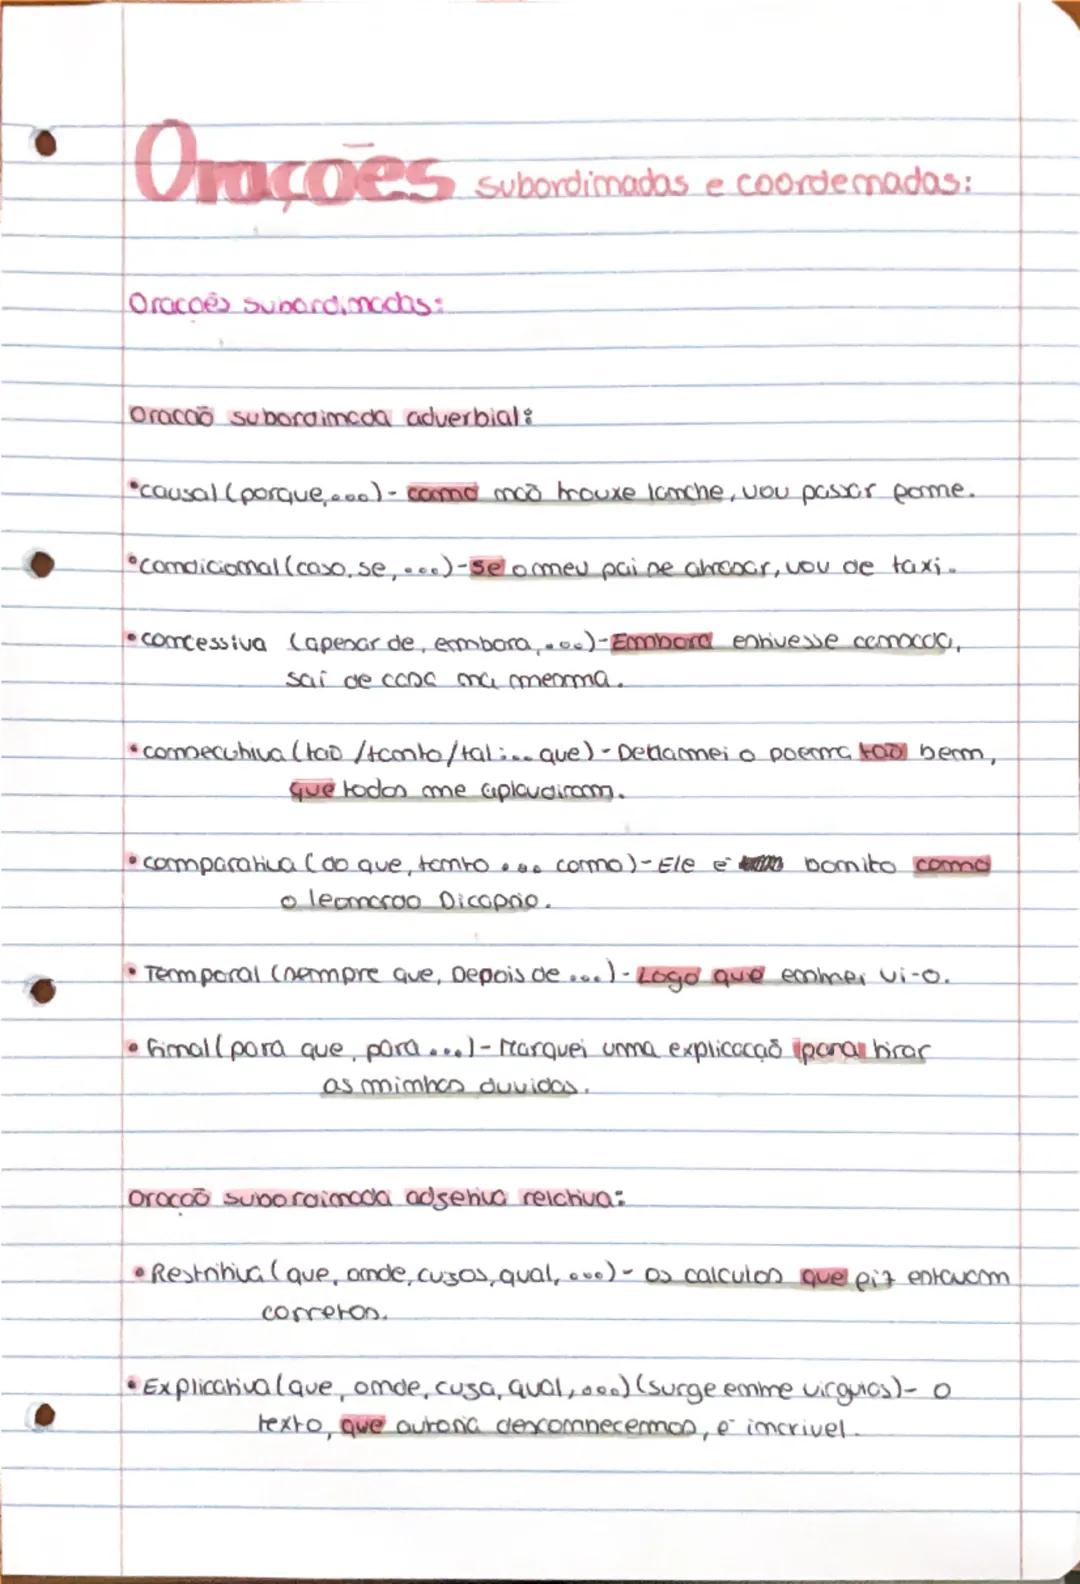 Orações subordinadas e coordenadas:
Orações subordinadas:
Oração subordinada adverbial:
•causal (porque,...)- como não trouxe lanche, vou passar fome.
•condicional (caso, se, ...)-se o meu pai se atrasar, vou de taxi.
•concessiva (apesar de, embora, ...)-Embora estivesse cansada,
sai de casa na mesma.
•consecutiva (tão /tanto/tal ... que) - Declamei o poema tão bem,
que todos me aplaudiram.
•comparativa (do que, tanto ... como)- Ele é bonito como
o leonardo Dicaprio.
•Temporal (sempre que, Depois de ...) - Logo que entrei vi-o.
•final (para que, para ...) - Marquei uma explicação para tirar
as minhas duvidas.
Oração subordinada adjetiva relativa:
•Restritiva (que, onde, cujos, qual, ...) - os calculos que fiz estavam
corretos.
•Explicativa (que, onde, cuja, qual, ...) (surge entre virgulas)- o
texto, que autoria desconhecemos, é incrivel.